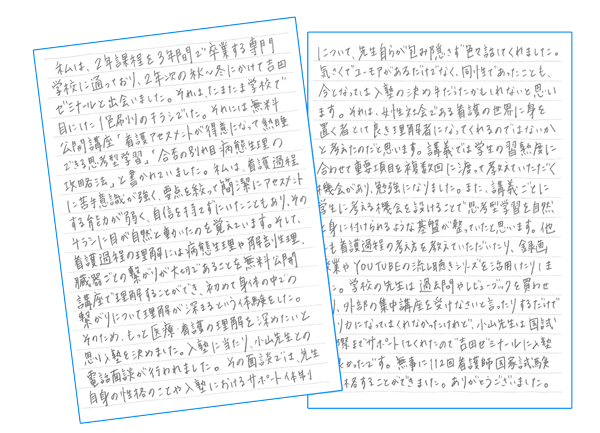 私は、2年課程を3年間で卒業する専門
学校に通っており、2年次の秋〜冬にかけて吉田
ゼミナールと出会いました。それは、たまたま学校で
目にした1色刷りのチラシでした。それには無料
公開講座「看護アセスメントが得意になって熟睡
できる思考型学習」「合否の別れ目病態生理の
攻略法」と書かれていました。私は、看護過程
に苦手意識が強く、要点を絞って簡潔にアセスメント
する能力が弱く、自信を持てずにいたこともあり、その
チラシに目が自然と動いたのを覚えています。そして、
看護過程の理解には病態生理や解剖生理、
臓器ごとの繋がりが大切であることを無料公開
講座で理解することができ、初めて身体の中での
繋がりについて理解が深まるという体験をした。
そのため、もっと医療・看護の理解を深めたいと
思い入塾を決めました。入塾に当たり、小山先生との
電話面談が行われました。その面談では、先生
自身の性格のことや入塾におけるサポート体制
について、先生自らが包み隠さず色々話してくれました。
気さくでユーモアがあるだけでなく、同性であったことも、
今となっては入塾の決め手だけかもしれないと思い
ます。それは、女性社会である看護の世界に身を
置く者として良き理解者になってくれるのではないか
と考えたのだと思います。講義では学生の習熟度に
合わせて重要項目を複数回に渡って考えていただく
機会があり、勉強になりました。また、講義ごとに
学生に考える機会を設けることで思考型学習を自然
と身に付けられるような基盤が整っていたと思います。他
にも看護過程の考え方を教えていただいたり、録画
授業やYOUTUBEの流し聴きシリーズを活用したりしま
た。学校の先生は過去問やレビューブックを買わせ
り、外部の集中講座を受けなさいと言ったりするだけで
力になってはくれなかったけれど、小山先生は国試
までサポートしてくれたので吉田ゼミナールに入塾
よかったです。無事に112回看護師国家試験
格することができました。ありがとうございました。